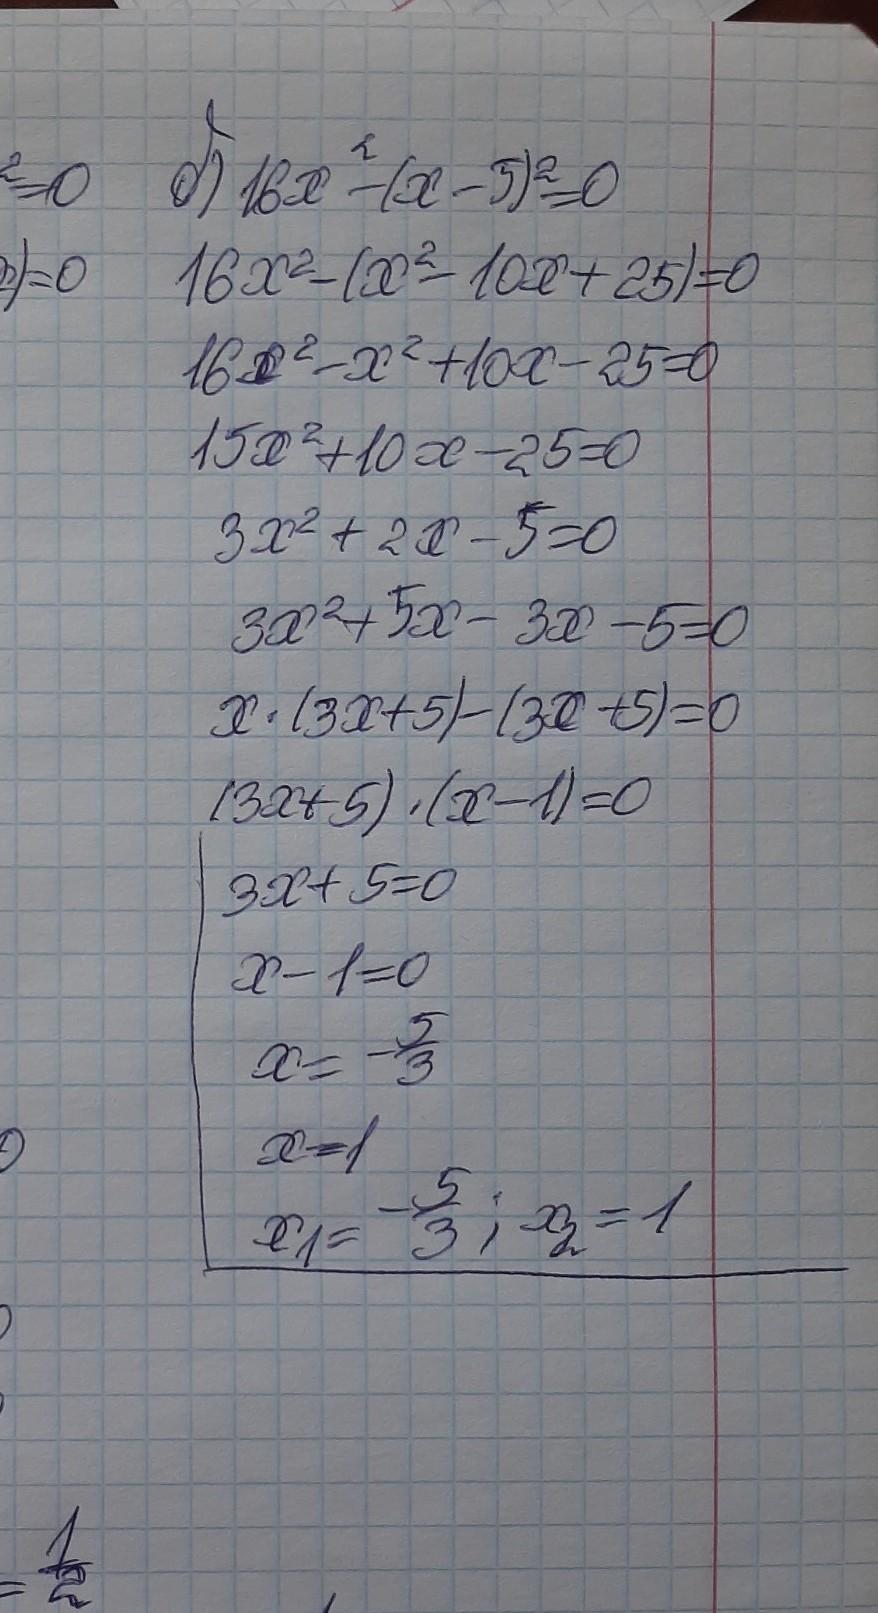 ²=0
)=0
б) 16x²-(x-5)²=0
16x²-(x²-10x+25)=0
16x²-x²+10x-25=0
15x²+10x-25=0
3x²+2x-5=0
3x²+5x-3x-5=0
x·(3x+5)-(3x+5)=0
(3x+5)·(x-1)=0
3x+5=0
x-1=0
x=-5/3
x=1
x₁=-5/3; x₂=1
=1/2